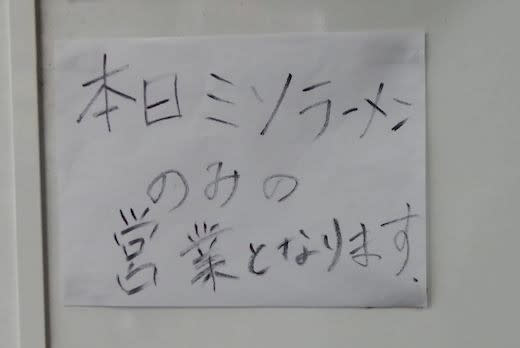 本日ミソラーメン
のみの
営業となります.